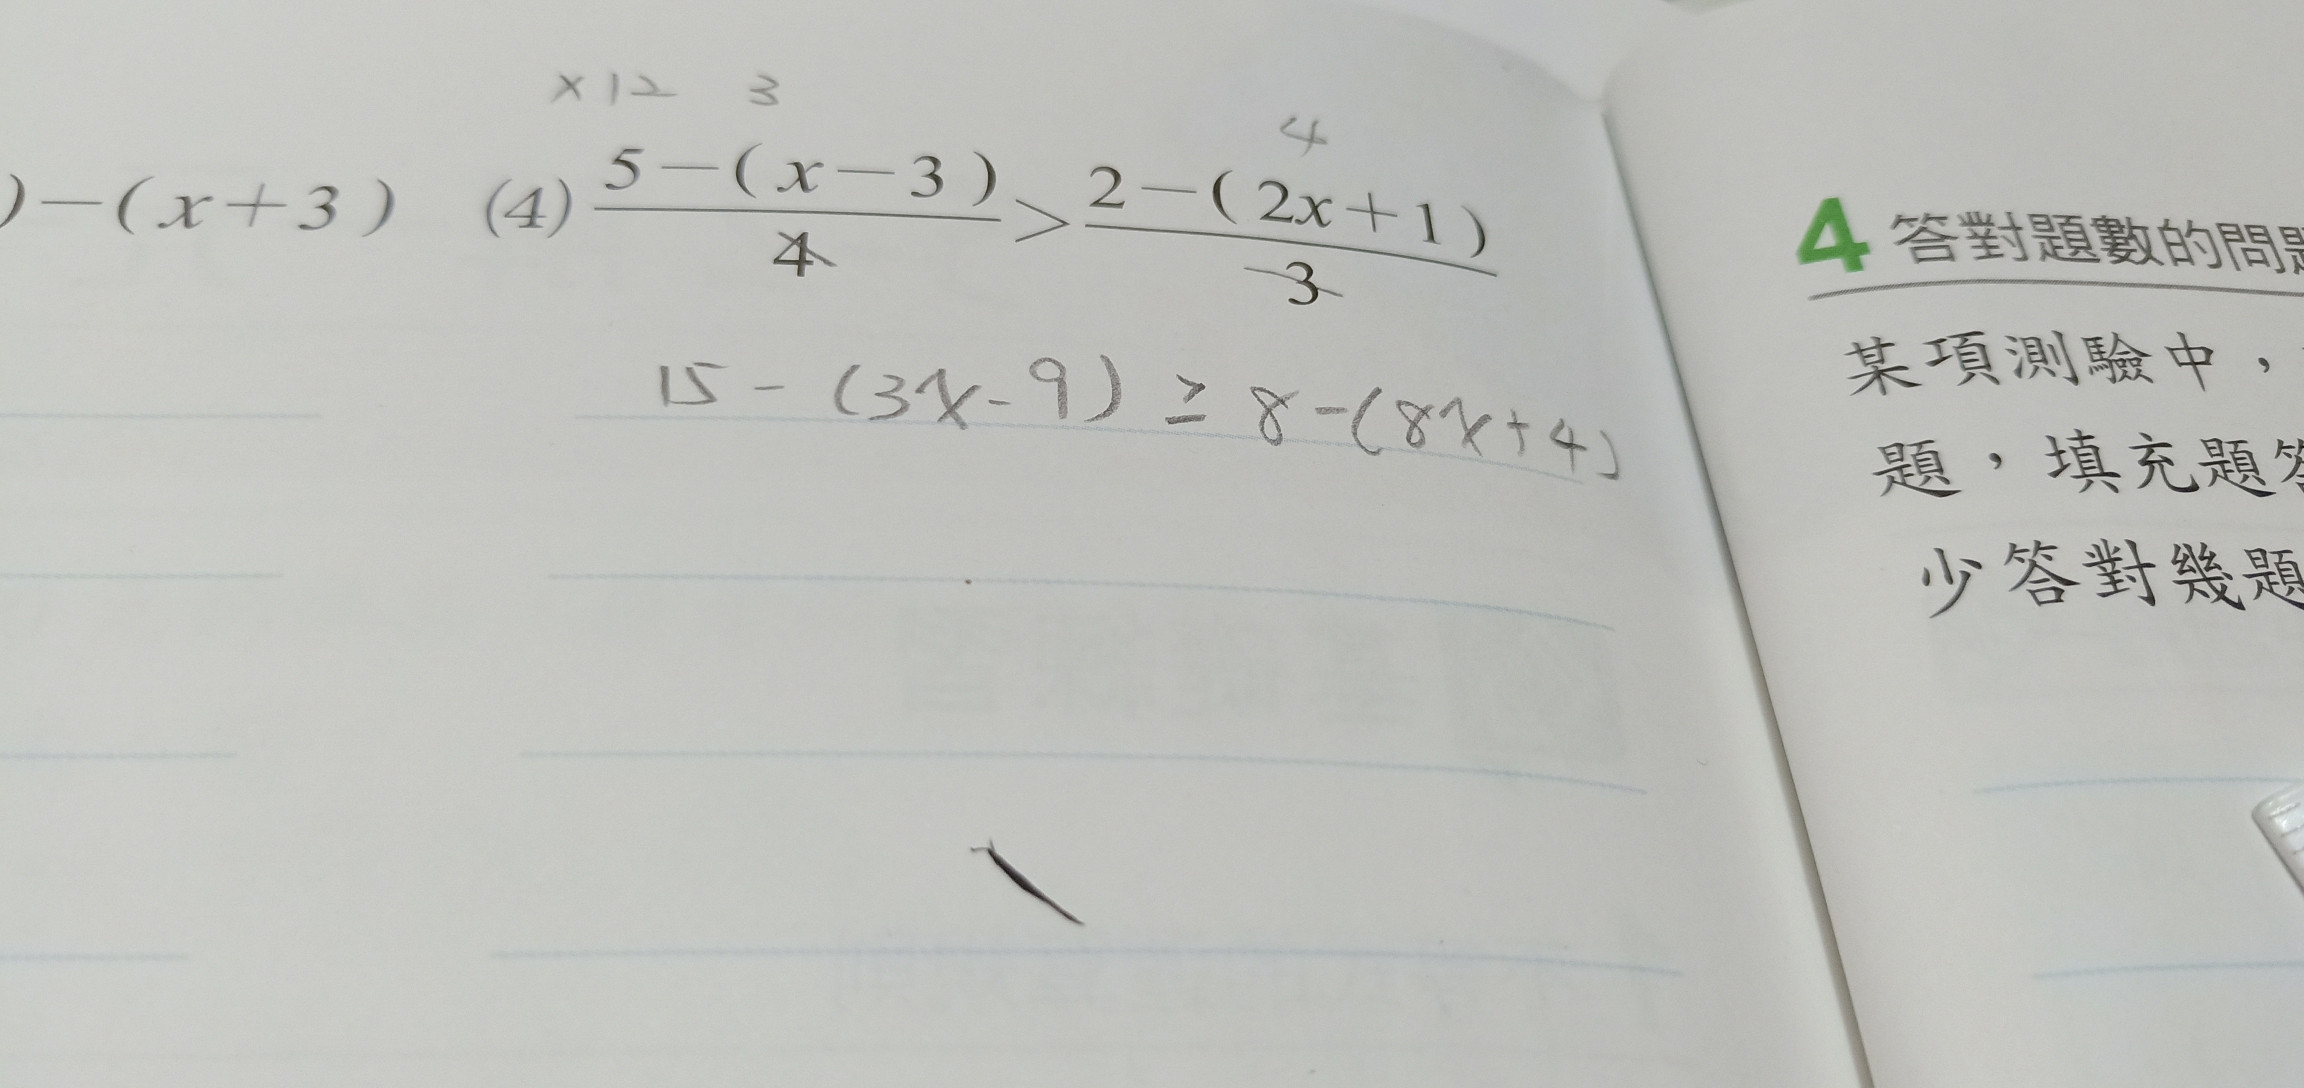 ×12 3
4
)-(x+3) (4) \frac{5-(x-3)}{4} > \frac{2-(2x+1)}{3}
15-(3x-9) ≥ 8-(8x+4)
4 答對題數的問題
某項測驗中，
題，填充題答
少答對幾題